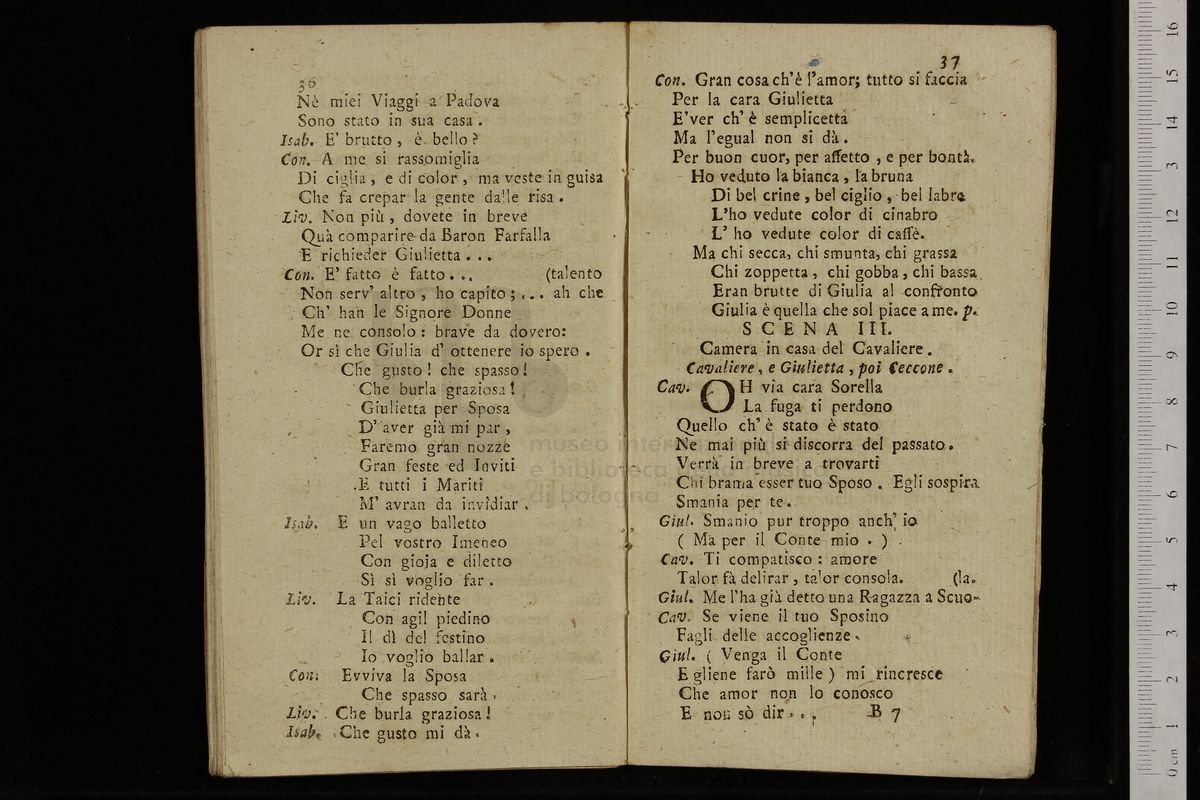 36
Nè miei Viaggi a Padova
Sono stato in sua casa .
Isab. E' brutto , è bello ?
Con. A me si rassomiglia
Di ciglia , e di color , ma veste in guisa
Che fa crepar la gente dalle risa .
Liv. Non più , dovete in breve
Quà comparire da Baron Farfalla
E richieder Giulietta . . .
Con. E' fatto è fatto . . . (talento
Non serv' altro , ho capito ; . . . ah che
Ch' han le Signore Donne
Me ne consolo : brave da dovero:
Or sì che Giulia d' ottenere io spero .
Che gusto ! che spasso !
Che burla graziosa !
Giulietta per Sposa
D' aver già mi par ,
Faremo gran nozze
Gran feste ed Inviti
E tutti i Mariti
M' avran da invidiar .
Isab. E un vago balletto
Pel vostro Imeneo
Con gioja e diletto
Sì sì voglio far .
Liv. La Taici ridente
Con agil piedino
Il dì del festino
Io voglio ballar .
Con. Evviva la Sposa
Che spasso sarà .
Liv. Che burla graziosa !
Isab. Che gusto mi dà .
37
Con. Gran cosa ch'è l'amor; tutto si faccia
Per la cara Giulietta
E'ver ch' è semplicetta
Ma l'egual non si dà .
Per buon cuor, per affetto , e per bontà.
Ho veduto la bianca , la bruna
Di bel crine , bel ciglio , bel labro
L'ho vedute color di cinabro
L' ho vedute color di caffè.
Ma chi secca, chi smunta, chi grassa
Chi zoppetta , chi gobba , chi bassa
Eran brutte di Giulia al confronto
Giulia è quella che sol piace a me. p.
SCENA III.
Camera in casa del Cavaliere .
Cavaliere , e Giulietta , poi Ceccone .
Cav. OH via cara Sorella
La fuga ti perdono
Quello ch' è stato è stato
Ne mai più si discorra del passato .
Verrà in breve a trovarti
Chi brama esser tuo Sposo . Egli sospira
Smania per te .
Giul. Smanio pur troppo anch' io
( Ma per il Conte mio . )
Cav. Ti compatisco : amore
Talor fà delirar , talor consola. (la.
Giul. Me l'ha già detto una Ragazza a Scuo-
Cav. Se viene il tuo Sposino
Fagli delle accoglienze .
Giul. ( Venga il Conte
E gliene farò mille ) mi rincresce
Che amor non lo conosco
E non sò dir . . . B 7
museo inter
e biblioteca
di bologna